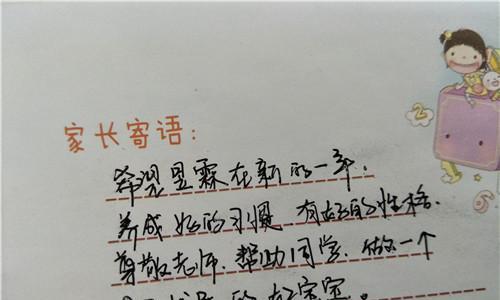 家长寄语:
希望昱霖在新的一年,
养成好的习惯,有好的性格.
尊敬老师.帮助同学.做一个
的好宝宝
2